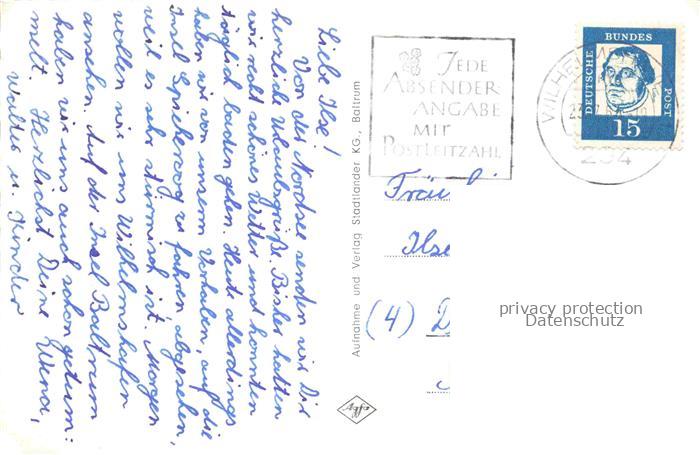 Liebe Ilse!
Von der Nordsee senden wir Dir
herzliche Urlaubsgrüße. Bisher hatten
wir recht schönes Wetter und konnten
täglich baden gehen. Heute allerdings
haben wir von unserm Vorhaben, auf die
Insel Spiekeroog zu fahren, abgesehen,
weil es sehr stürmisch ist. Morgen
wollen wir uns Wilhelmshafen
ansehen. Auf der Insel Baltrum
haben wir uns auch schon getum:
melt. Herzlichst Deine Wena,
Walter u. Kinder
Aufnahme und Verlag Stadtlander KG., Baltrum
Agfa
JEDE
ABSENDER
ANGABE
MIT
POSTLEITZAHL
WILHELM
23
294
DEUTSCHE
BUNDES
POST
15
Fräu
Ilse
(4) D
privacy protection
Datenschutz